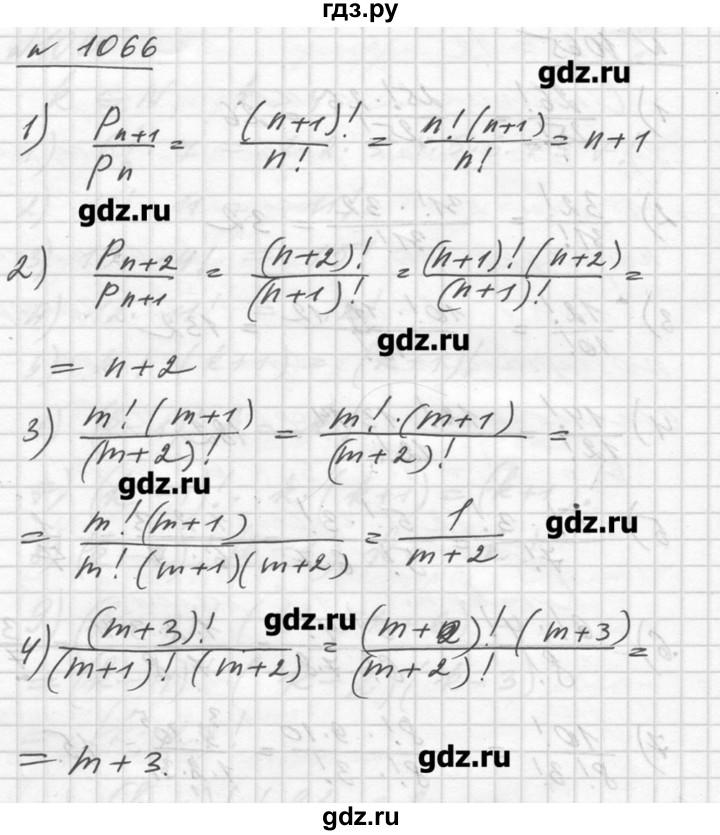 гдз.ру
№ 1066
gdz.ru
1) P_{n+1}/P_n = (n+1)!/n! = n!(n+1)/n! = n+1
gdz.ru
2) P_{n+2}/P_{n+1} = (n+2)!/(n+1)! = (n+1)!(n+2)/(n+1)! =
gdz.ru
= n+2
3) m!(m+1)/(m+2)! = m!·(m+1)/(m+2)! =
gdz.ru
= m!(m+1)/m!(m+1)(m+2) = 1/m+2
gdz.ru
gdz.ru
4) (m+3)!/(m+1)!(m+2) = (m+2)!(m+3)/(m+2)! =
= m+3.
gdz.ru
gdz.ru